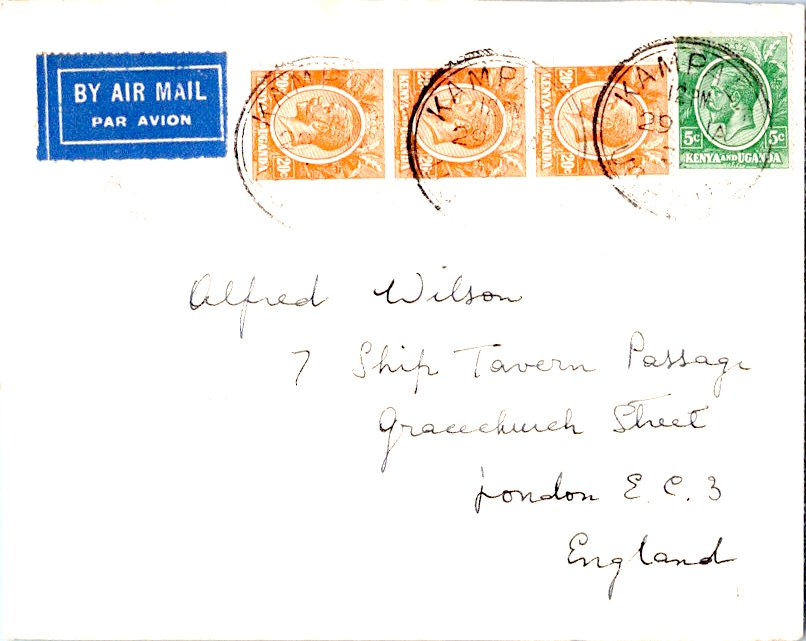 BY AIR MAIL
PAR AVION
20c KENYA AND UGANDA 20c
20c KENYA AND UGANDA 20c
20c KENYA AND UGANDA 20c
5c 5c
KENYA AND UGANDA
KAMPA
KAMPA
12 PM
29
KAMPA
12 PM
29
Alfred Wilson
7 Ship Tavern Passage
Gracechurch Street
London E.C.3
England